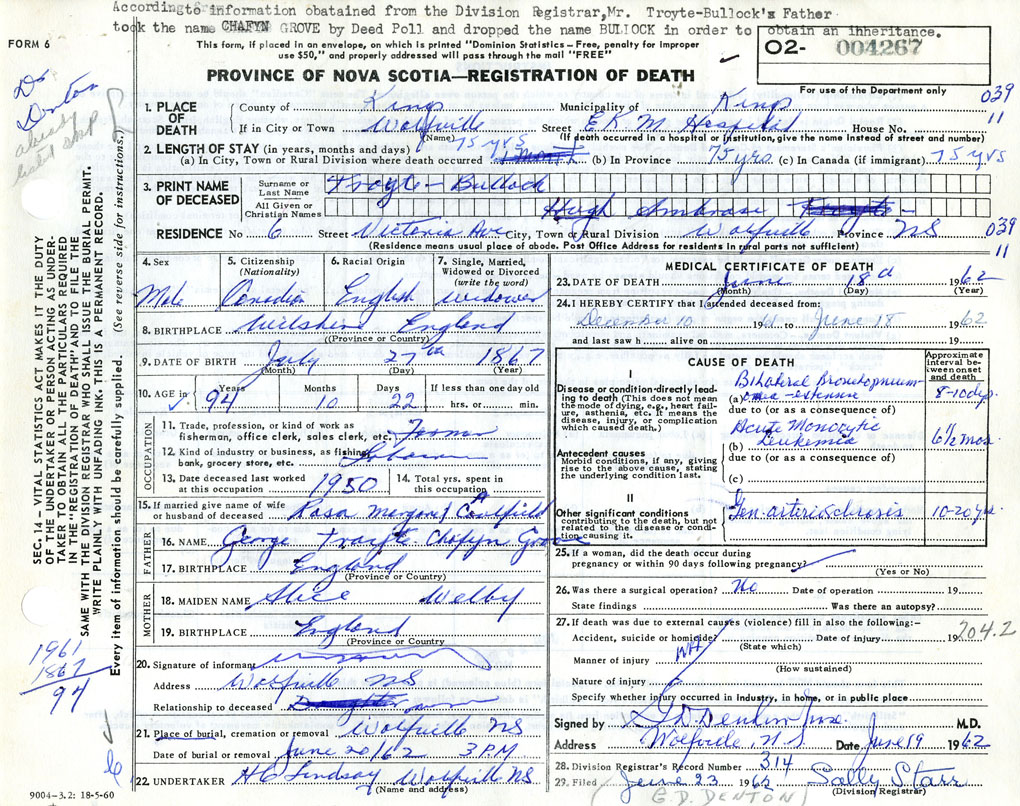 According to information obatained from the Division Registrar,Mr. Troyte-Bullock's Father
took the name CHAFYN GROVE by Deed Poll and dropped the name BULLOCK in order to obtain an inheritance.
FORM 6
This form, if placed in an envelope, on which is printed "Dominion Statistics – Free, penalty for improper
use $50," and properly addressed will pass through the mail "FREE"
O2- 004267
For use of the Department only
PROVINCE OF NOVA SCOTIA—REGISTRATION OF DEATH
039
11
Dr Denton
1. PLACE OF DEATH
County of Kings Municipality of Kings
If in City or Town Wolfville Street E.K.M. Hospital House No.
(Name) (If death occurred in a hospital or institution, give the name instead of street and number)
2. LENGTH OF STAY (in years, months and days) 75 yrs
(a) In City, Town or Rural Division where death occurred (b) In Province 75 yrs. (c) In Canada (if immigrant) 75 yrs
3. PRINT NAME OF DECEASED
Surname or Last Name Troyte-Bullock
All Given or Christian Names Hugh Ambrose Troyte-
RESIDENCE No 6 Street Victoria Ave City, Town or Rural Division Wolfville Province NS
(Residence means usual place of abode. Post Office Address for residents in rural parts not sufficient)
039
11
SEC. 14 – VITAL STATISTICS ACT MAKES IT THE DUTY
OF THE UNDERTAKER OR PERSON ACTING AS UNDER-
TAKER TO OBTAIN ALL THE PARTICULARS REQUIRED
IN THE "REGISTRATION OF DEATH" AND TO FILE THE
SAME WITH THE DIVISION REGISTRAR WHO SHALL ISSUE THE BURIAL PERMIT.
WRITE PLAINLY WITH UNFADING INK. THIS IS A PERMANENT RECORD.
Every item of information should be carefully supplied. (See reverse side for instructions.)
4. Sex Male
5. Citizenship (Nationality) Canadian
6. Racial Origin English
7. Single, Married, Widowed or Divorced (write the word) widower
8. BIRTHPLACE Wiltshire England
(Province or Country)
9. DATE OF BIRTH July 27th 1867
(Month) (Day) (Year)
10. AGE in Years 94 Months 10 Days 22 If less than one day old hrs. or min.
OCCUPATION
11. Trade, profession, or kind of work as
fisherman, office clerk, sales clerk, etc. Farmer
12. Kind of industry or business, as fishing,
bank, grocery store, etc.
13. Date deceased last worked at this occupation 1950
14. Total yrs. spent in this occupation
15. If married give name of wife
or husband of deceased Rosa Margaret A Caulfield
FATHER
16. NAME George Troyte Chafyn Grove
17. BIRTHPLACE England
(Province or Country)
MOTHER
18. MAIDEN NAME Alice Welby
19. BIRTHPLACE England
(Province or Country
20. Signature of informant
Address Wolfville NS
Relationship to deceased Daughter
21. Place of burial, cremation or removal Wolfville NS
Date of burial or removal June 20/62 3 PM
22. UNDERTAKER H C Lindsay Wolfville NS
(Name and address)
1961
1867
94
9004–3.2: 18-5-60
MEDICAL CERTIFICATE OF DEATH
23. DATE OF DEATH June 18 1962
(Month) (Day) (Year)
24. I HEREBY CERTIFY that I attended deceased from:
December 10 1961 to June 18 1962
and last saw h alive on 19
CAUSE OF DEATH
Approximate interval between onset and death
I
Disease or condition directly lead-
ing to death (This does not mean
the mode of dying, e.g., heart fail-
ure, asthenia, etc. It means the
disease, injury, or complication
which caused death.)
(a) Bilateral Bronchopneumonia 8-10 dys.
due to (or as a consequence of)
Antecedent causes
Morbid conditions, if any, giving
rise to the above cause, stating
the underlying condition last.
(b) Acute Monozytic Leukemia 6½ mos.
due to (or as a consequence of)
(c)
II
Other significant conditions
contributing to the death, but not
related to the disease or condi-
tion causing it.
Gen. arteriosclerosis 10-20 yrs.
25. If a woman, did the death occur during
pregnancy or within 90 days following pregnancy?
(Yes or No)
26. Was there a surgical operation? No Date of operation 19
State findings Was there an autopsy?
27. If death was due to external causes (violence) fill in also the following:–
Accident, suicide or homicide? Date of injury 19
(State which)
204.2
Manner of injury
(How sustained)
Nature of injury
Specify whether injury occurred in industry, in home, or in public place
Signed by G D Denton M.D.
Address Wolfville, N.S. Date June 19 1962
28. Division Registrar's Record Number 314
29. Filed June 23 1962 Sally Starr
(Division Registrar)
(G. D. DENTON)